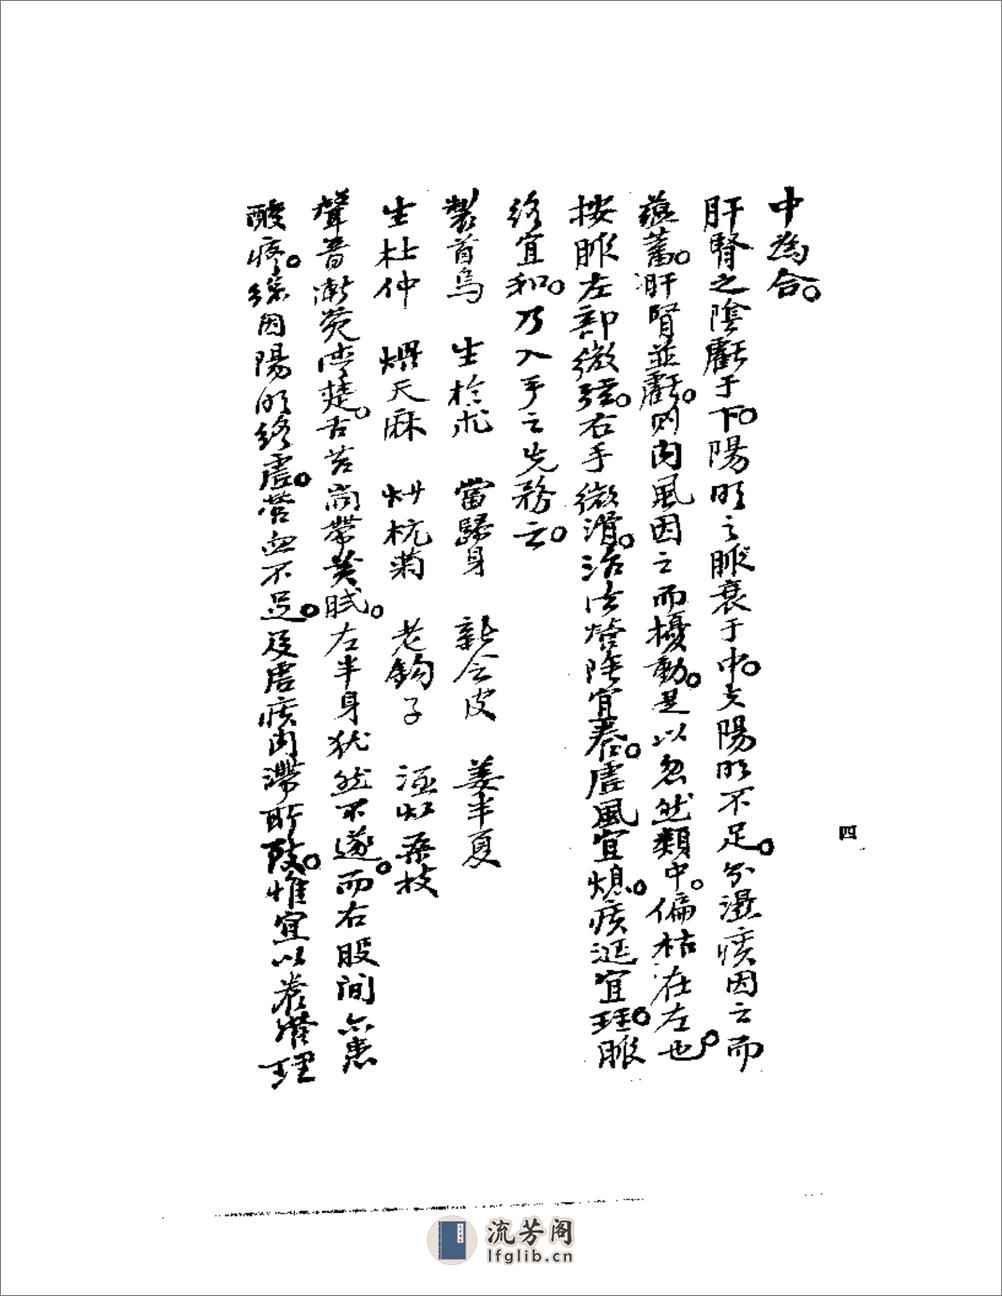 中為合。
肝腎之陰虧于下。陽明之脈衰于中。夫陽明不足。分濕痰因之而
蘊蓄。肝腎並虧。則內風因之而擾動。是以忽然類中。偏枯在左也。
按脈左部微弦。右手微滑。治法營陰宜養。虛風宜熄。痰涎宜理。脈
絡宜和。乃入手之先務云。
製首烏 生於朮 當歸身 新會皮 姜半夏
生杜仲 煨天麻 炒杭菊 老鉤子 酒炒桑枝
聲音漸覺清楚。舌苔尚帶黃膩。左半身猶然不遂。而右股間亦患
酸疼。緣因陽明絡虛。營血不足。及虛痰內滯所致。惟宜以養營理
四
流芳阁
lfglib.cn